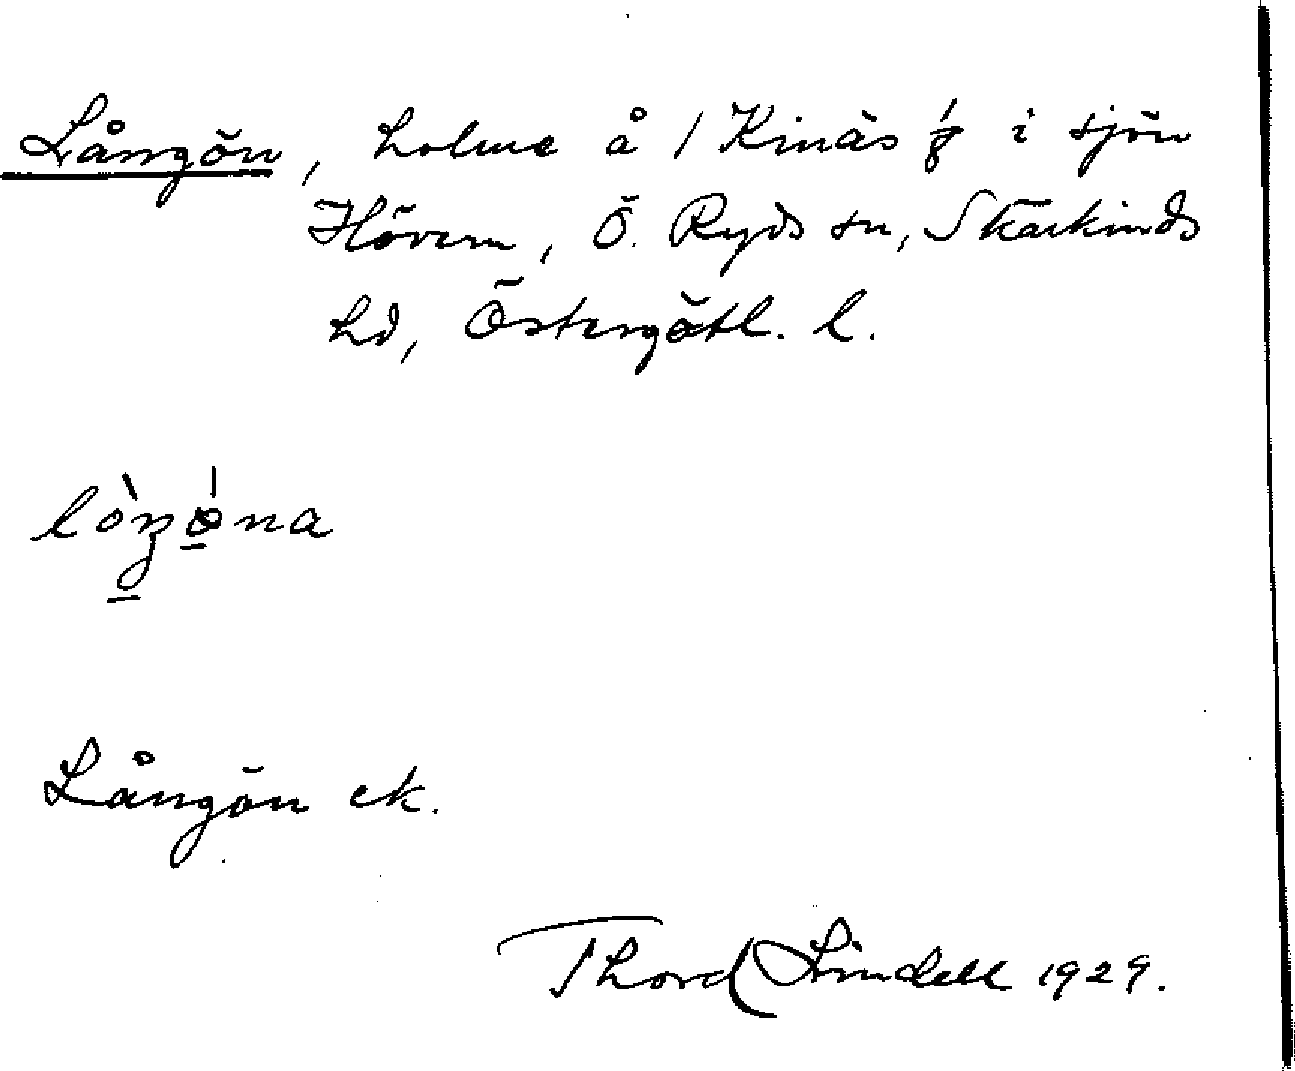 Långön, holme å 1 Kinäs i sjön
Hövern, Ö. Ryds sn, Skärkinds
hd, Östergötl. l.
Långön ek.
Thord Lindell 1929.